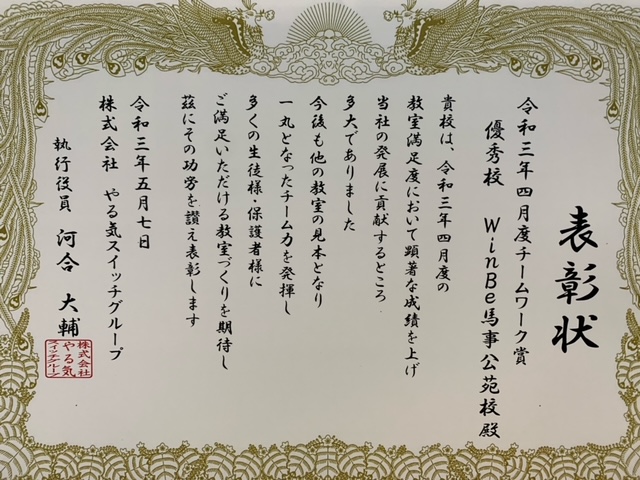 表彰状
令和三年四月度チームワーク賞
優秀校 WinBe馬事公苑校殿
貴校は、令和三年四月度の
教室満足度において顕著な成績を上げ
当社の発展に貢献するところ
多大でありました
今後も他の教室の見本となり
一丸となったチーム力を発揮し
多くの生徒様・保護者様に
ご満足いただける教室づくりを期待し
茲にその功労を讃え表彰します
令和三年五月七日
株式会社 やる気スイッチグループ
執行役員 河合 大輔
株式会社
やる気
スイッチグループ